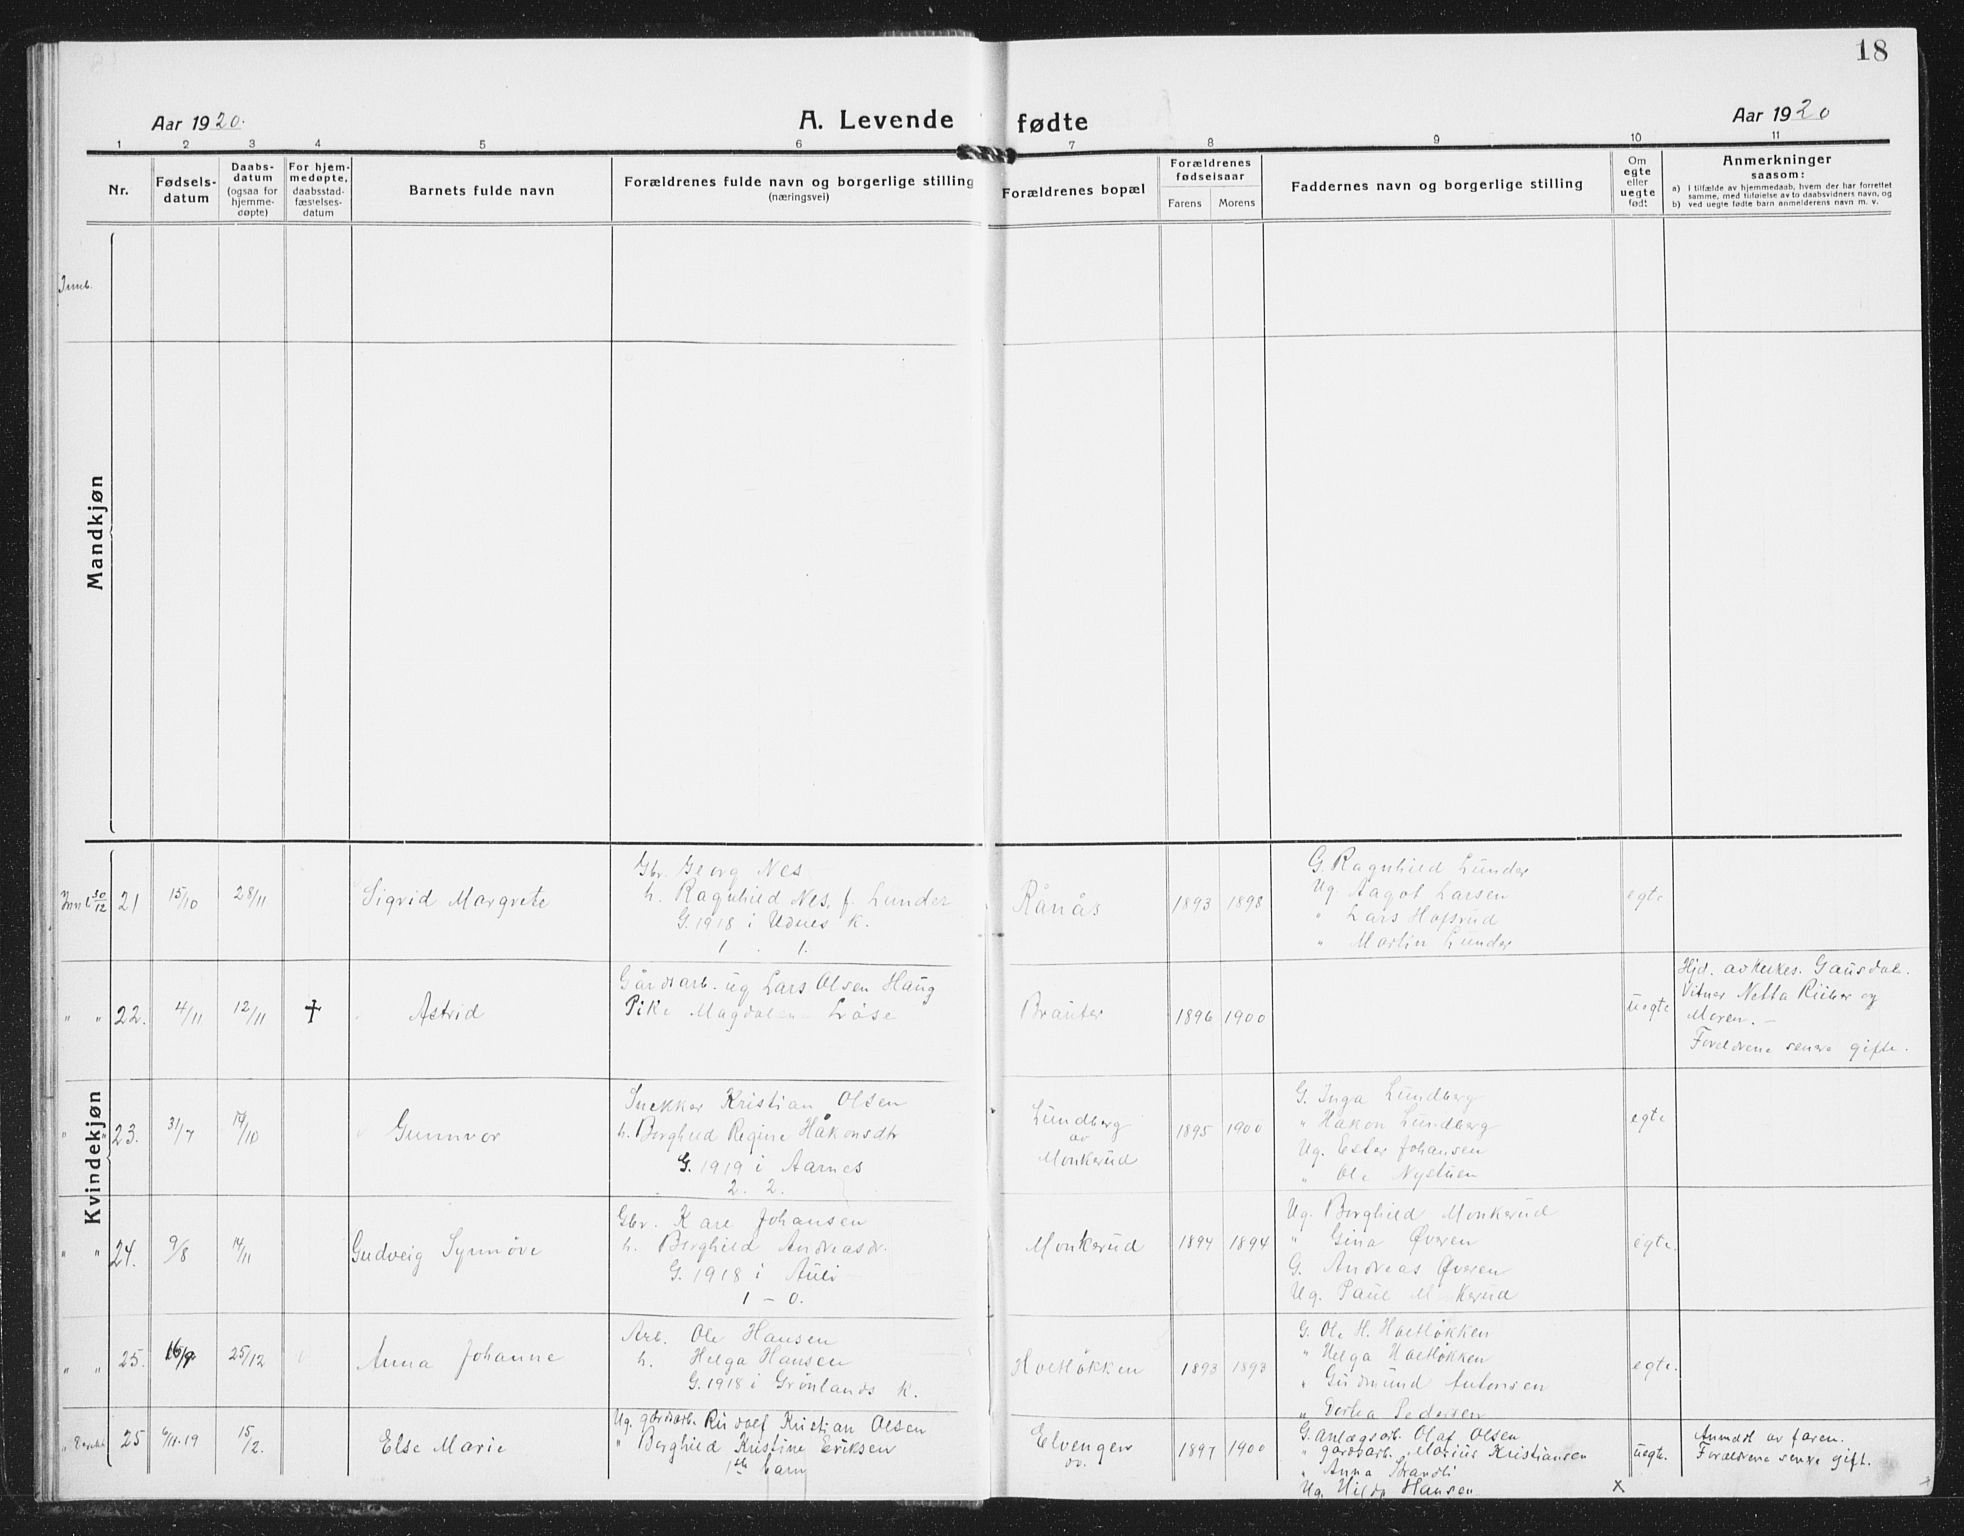 18
Aar 1920.
A. Levende fødte
Aar 1920
1 2 3 4 5 6 7 8 9 10 11
Nr.
Fødsels-
datum
Daabs-
datum
(ogsaa for
hjemme-
døpte)
For hjem-
medøpte,
daabsstad-
fæstelses-
datum
Barnets fulde navn
Forældrenes fulde navn og borgerlige stilling
(næringsvei)
Forældrenes bopæl
Forældrenes
fødselsaar
Farens Morens
Faddernes navn og borgerlige stilling
Om
egte
eller
uegte
født
Anmerkninger
saasom:
a) i tilfælde av hjemmedaab, hvem der har forrettet
samme, med tilføielse av to daabsvidners navn, og
b) ved uegte fødte barn anmelderens navn m. v.
Innb.
Mandkjøn
Kvindekjøn
Innb 30/12 21
15/10
28/11
Sigrid Margrete
Gbr. Georg Nes
h. Ragnhild Nes, f. Lunder
G. 1918 i Udnes K.
1 . 1.
Rånås
1893 1898
G. Ragnhild Lunder
Ug. Aagot Larsen
" Lars Hofsrud
" Martin Lunder
egte
" " 22.
4/11
12/11
†
Astrid
Gårdsarb. ug Lars Olsen Haug
Pike Magdalena Løse
Brauter
1896 1900
uegte
Hjd. av kirkes. Gausdal.
Vitner Netta Rieber og
Moren. –
Foreldrene senere gifte.
" " 23.
31/7
14/10
Gunnvor
Snekker Kristian Olsen
h. Borghild Regine Håkonsdtr
G. 1919 i Aarnes
2. 2.
Lundberg
av
Monkerud
1895 1900
G. Inga Lundberg
" Håkon Lundberg
Ug. Ester Johansen
" Ole Nystuen
egte
" " 24.
9/8
14/11
Gudveig Synnøve
Gbr. Karl Johansen
h. Borghild Andreasdr.
G. 1918 i Auli
1 – 0.
Monkerud
1894 1894
Ug. Borghild Monkerud
" Gina Øveren
G. Andreas Øveren
Ug. Paul Monkerud
egte.
" " 25.
16/9
25/12
Anna Johanne
Arb. Ole Hansen
h. Helga Hansen
G. 1918 i Grønlands K.
Holtløkken
1893 1893
G. Ole H. Holtløkken
" Helga Holtløkken
" Gudmund Antonsen
" Dortea Pedersen
egte.
" 25
6/11.19
15/2.
Else Marie
Ug. gårdsarb. Rudolf Kristian Olsen
" Borghild Kristine Eriksen
1ste barn
Elvengen
1897 1900
G. Anlægsarb. Olaf Olsen
" gårdsarb. Marius Kristiansen
" Anna Strandli
Ug. Hilda Hansen
uegte.
x
Anmeldt av faren.
Foreldrene senere gift.